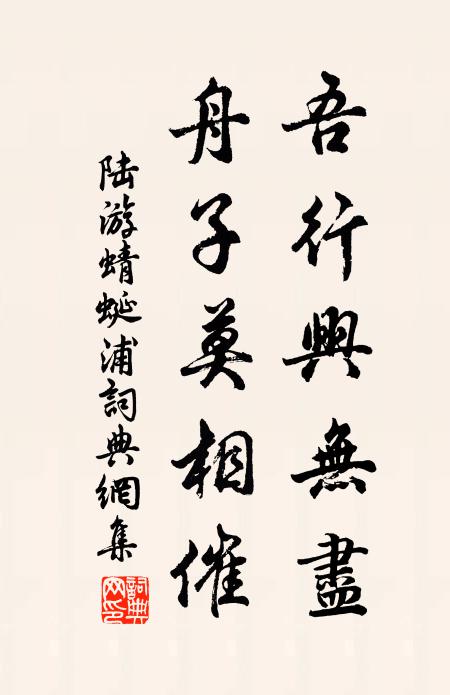 吾行興無盡
舟子莫相催
陆游蜻蜒浦詞典網集
詞典網印